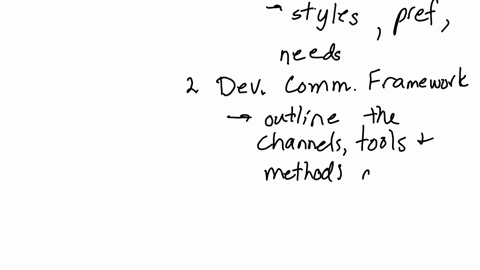 → styles, pref,
needs
2 Dev. Comm. Framework
→ outline the
channels, tools +
methods